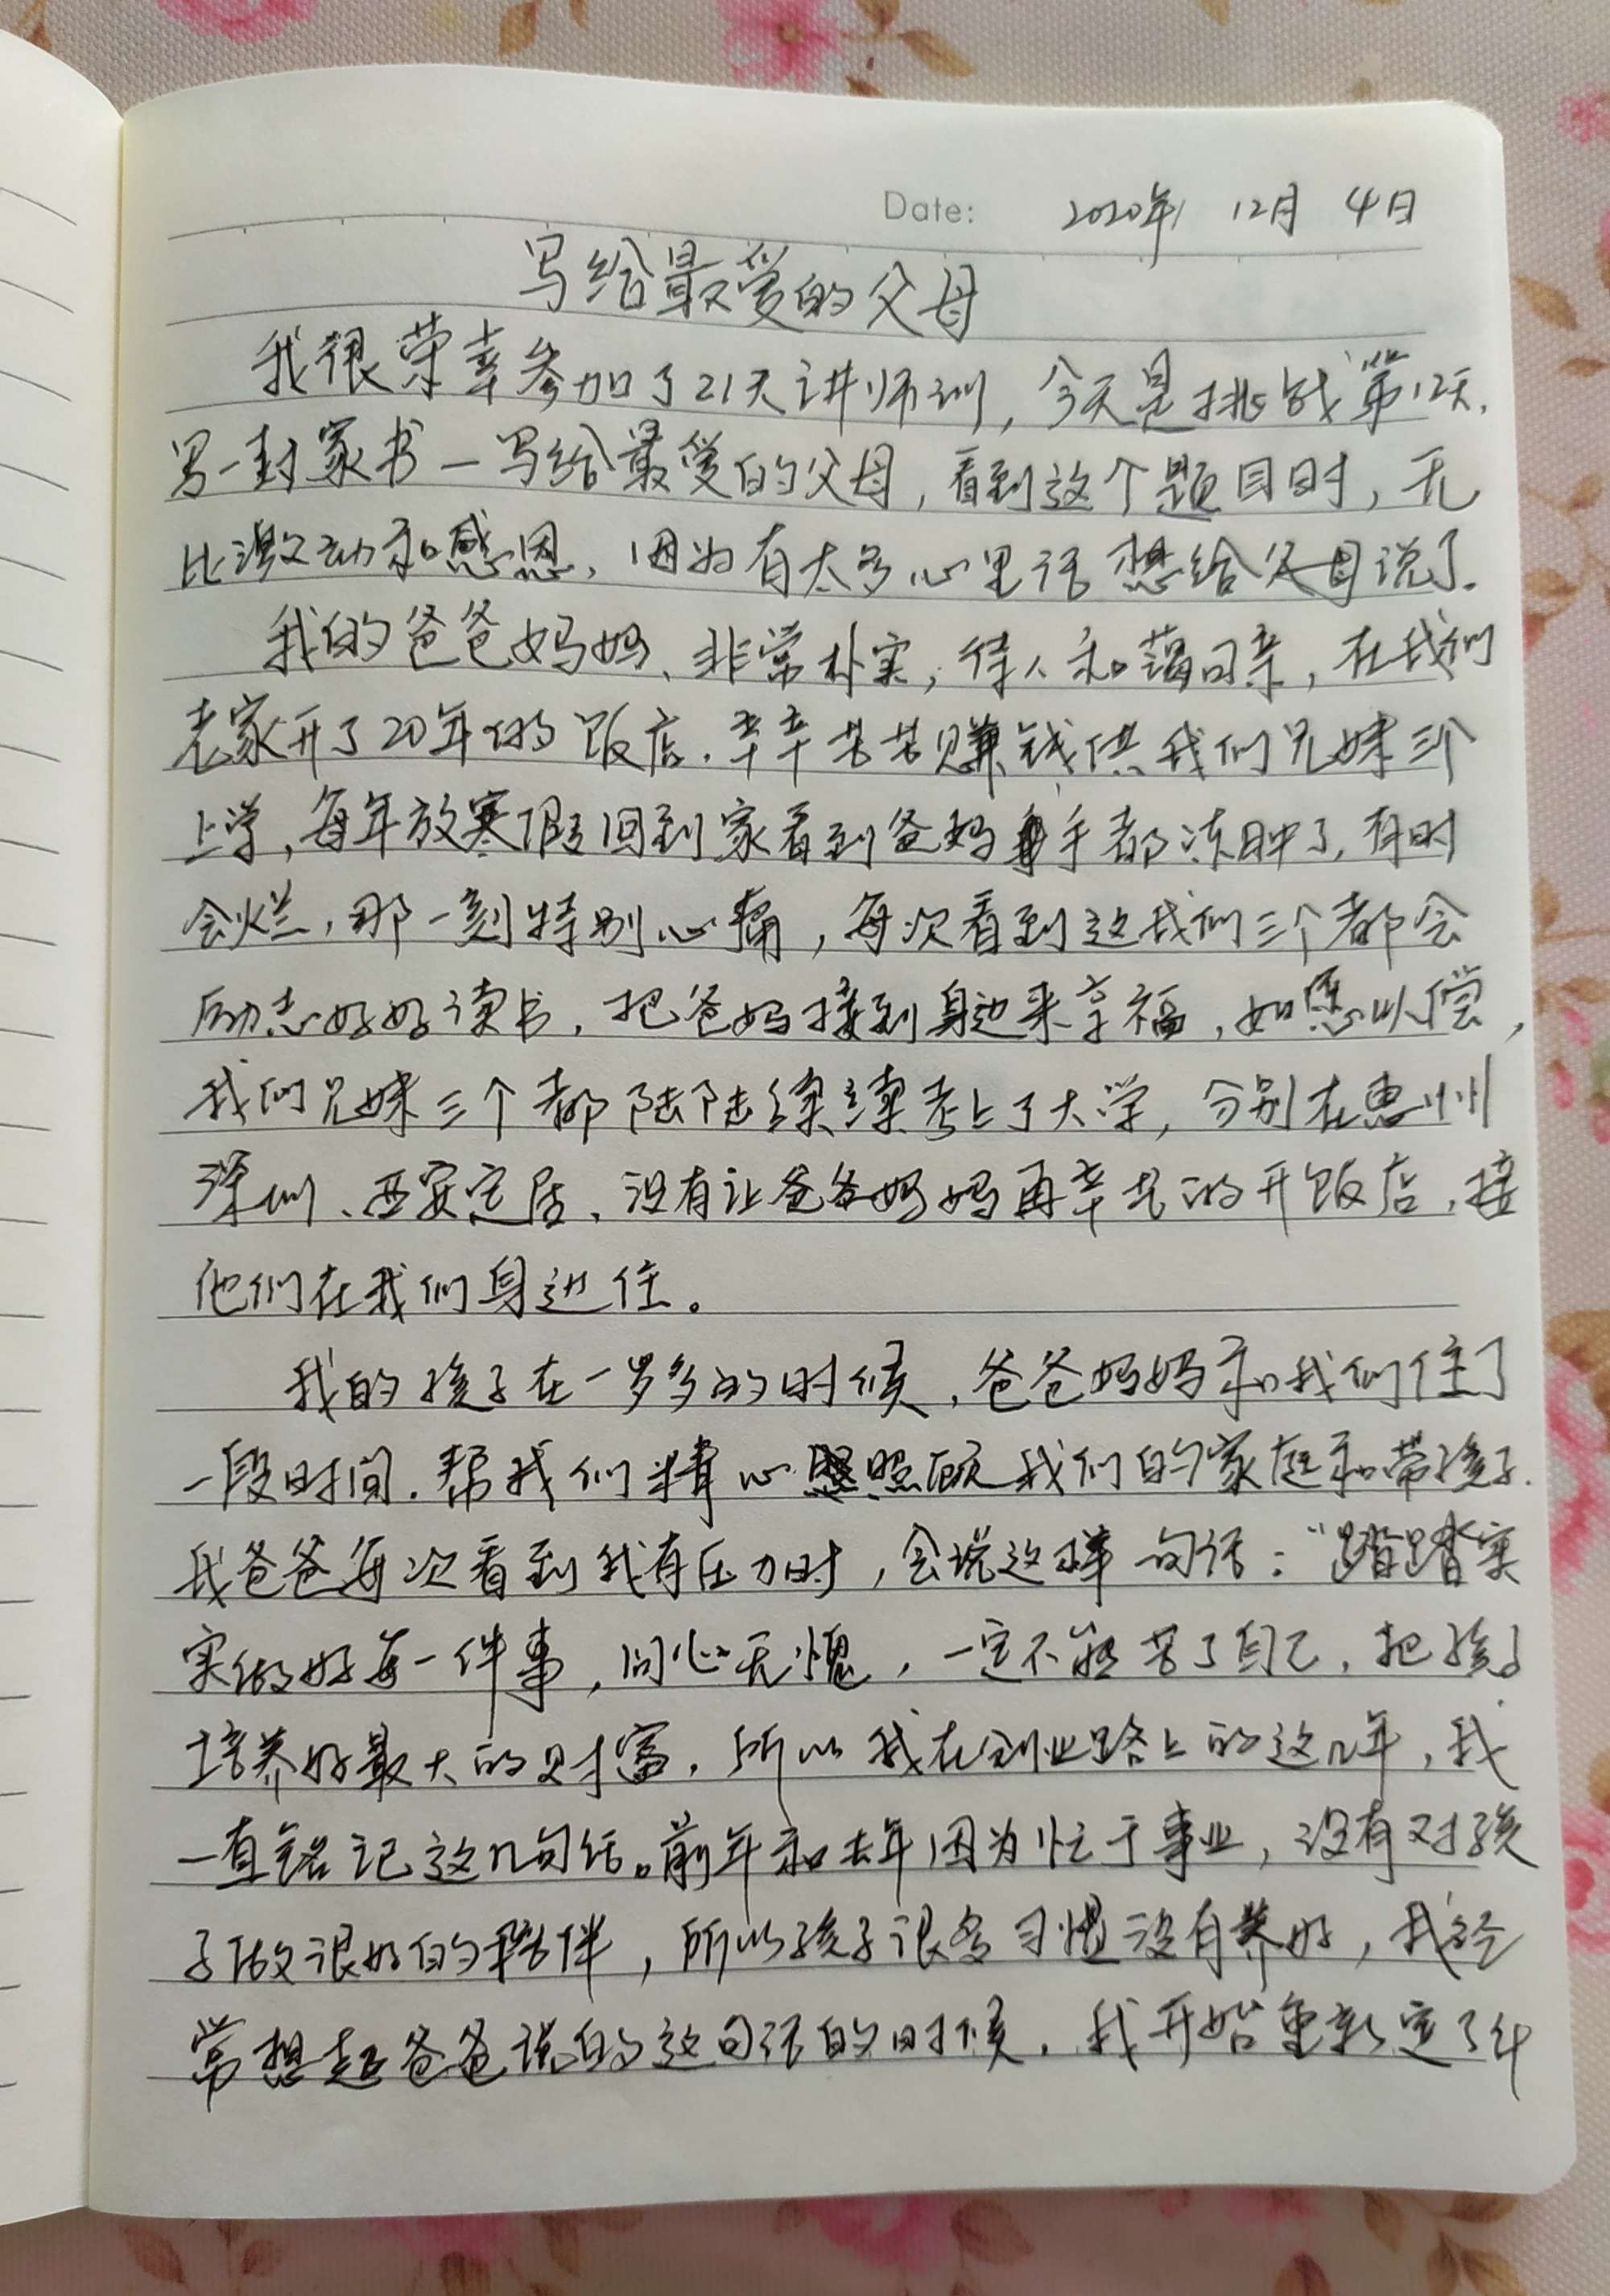 Date: 2020年 12月 4日
写给最爱的父母
我很荣幸参加了21天讲师训，今天是挑战第12天，
写一封家书—写给最爱的父母，看到这个题目时，无
比激动和感恩，因为有太多心里话想给父母说了.
我的爸爸妈妈、非常朴实，待人和蔼可亲，在我们
老家开了20年的饭店.辛辛苦苦赚钱供我们兄妹三个
上学，每年放寒假回到家看到爸妈手都冻肿了，有时
会烂，那一刻特别心痛，每次看到这我们三个都会
励志好好读书，把爸妈接到身边来享福，如愿以偿，
我们兄妹三个都陆陆续续考上了大学，分别在惠州
深圳、西安定居、没有让爸爸妈妈再辛苦的开饭店，接
他们在我们身边住。
我的孩子在一岁多的时候，爸爸妈妈和我们住了
一段时间.帮我们精心照顾我们的家庭和带孩子.
我爸爸每次看到我有压力时，会说这样一句话：“踏踏实
实做好每一件事，问心无愧，一定不能苦了自己，把孩子
培养好最大的财富，所以我在创业路上的这几年，我
一直铭记这几句话。前年和去年因为忙于事业，没有对孩
子做很好的陪伴，所以孩子很多习惯没有养好，我经
常想起爸爸说的这句话的时候，我开始重新定了计